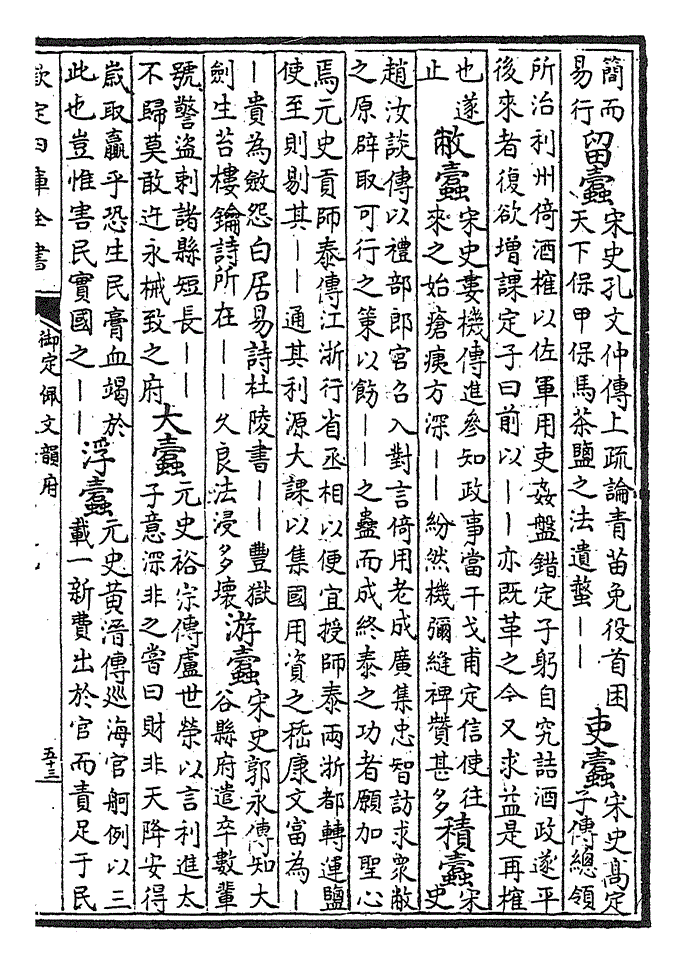 簡而
易行
留蠹
宋史孔文仲傳上疏論青苗免役首困
天下保甲保馬茶鹽之法遺螫——
吏蠹
宋史高定
子傳總領
所治利州倚酒榷以佐軍用吏姦盤錯定子躬自究詰酒政遂平
後來者復欲增課定子曰前以——亦既革之今又求益是再榷
也遂
止
敝蠹
宋史婁機傳進參知政事當干戈甫定信使往
來之始瘡痍方深——紛然機彌縫裨贊甚多
積蠹
宋
史
趙汝談傳以禮部郎官召入對言倚用老成廣集忠智訪求衆敝
之原辟取可行之策以飭——之蠱而成終泰之功者願加聖心
焉元史貢師泰傳江浙行省丞相以便宜授師泰兩浙都轉運鹽
使至則剔其——通其利源大課以集國用資之嵇康文富為—
—貴為斂怨白居易詩杜陵書——豐獄
劍生苔樓鑰詩所在——久良法浸多壞
游蠹
宋史郭永傳知大
谷縣府遣卒數輩
號警盜刺諸縣短長——
不歸莫敢迕永械致之府
大蠹
元史裕宗傳盧世榮以言利進太
子意深非之嘗曰財非天降安得
歲取贏乎恐生民膏血竭於
此也豈惟害民實國之——
浮蠹
元史黃溍傳巡海官舸例以三
載一新費出於官而責足于民
欽定四庫全書
御定佩文韻府
五十三